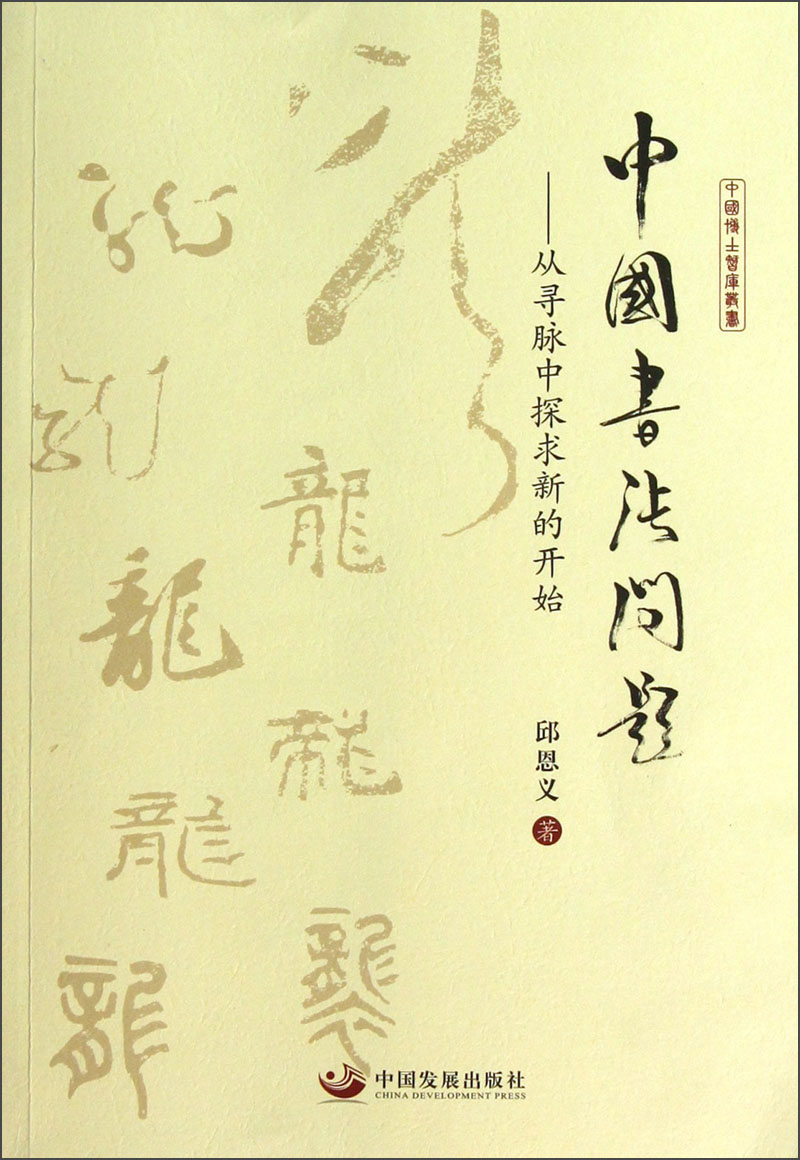 中國博士智庫叢書
中國書法问题
——从寻脉中探求新的开始
邱恩义 著
龍
龍
龍
龍
龍
龍
中国发展出版社
CHINA DEVELOPMENT PRESS